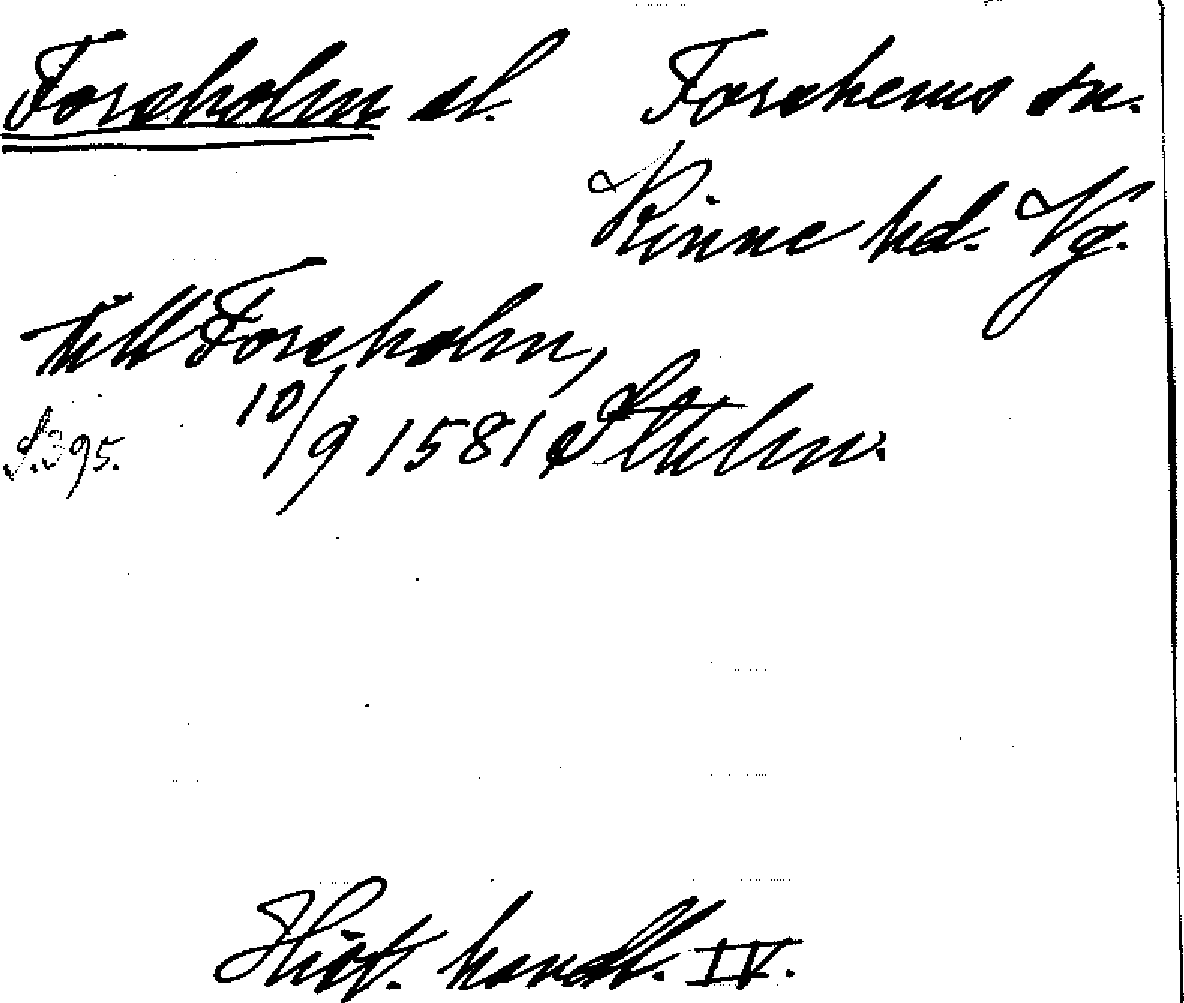 Forsholm sl. Forshems sn.
Kinne hd. Vg.
till Forsholm,
S. 395. 10/9 1581 Sthlm.
Hist. handl. IV.